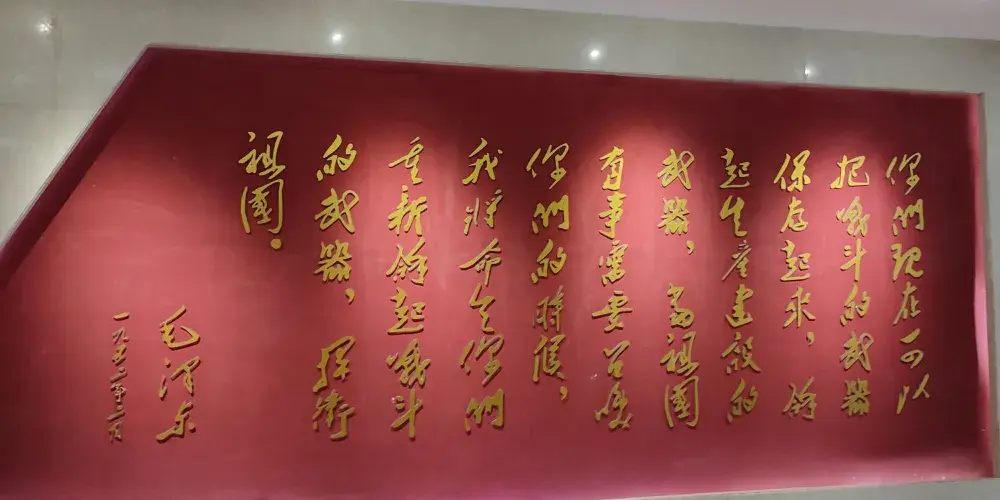 你們现在可以
把战斗的武器
保存起来，拿
起生產建設的
武器，當祖國
有事需要召唤
你們的時候，
我将命令你們
重新拿起战斗
的武器，保衛
祖國。
毛泽东
一九五二年二月